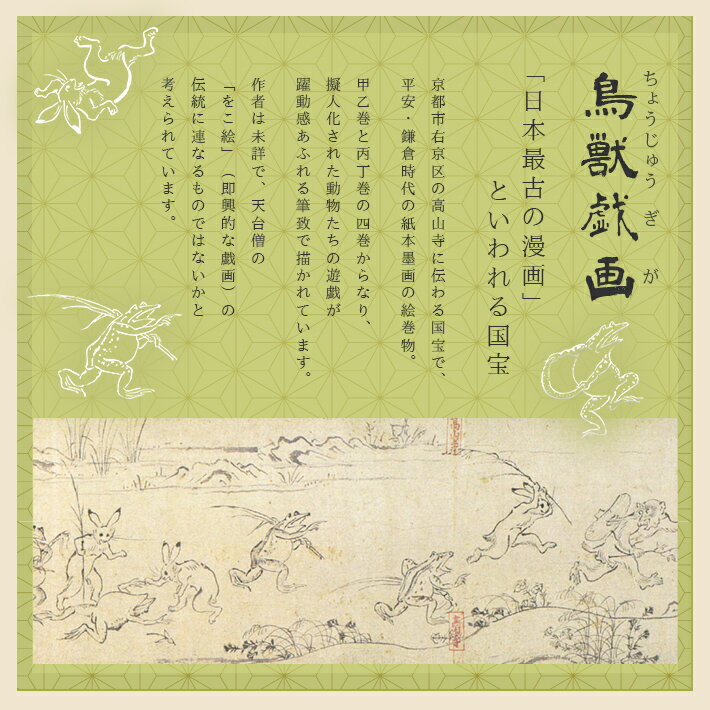 鳥獣戯画
ちょうじゅう ぎ が
「日本最古の漫画」
といわれる国宝
京都市右京区の高山寺に伝わる国宝で、
平安・鎌倉時代の紙本墨画の絵巻物。
甲乙巻と丙丁巻の四巻からなり、
擬人化された動物たちの遊戯が
躍動感あふれる筆致で描かれています。
作者は未詳で、天台僧の
「をこ絵」（即興的な戯画）の
伝統に連なるものではないかと
考えられています。
高山寺